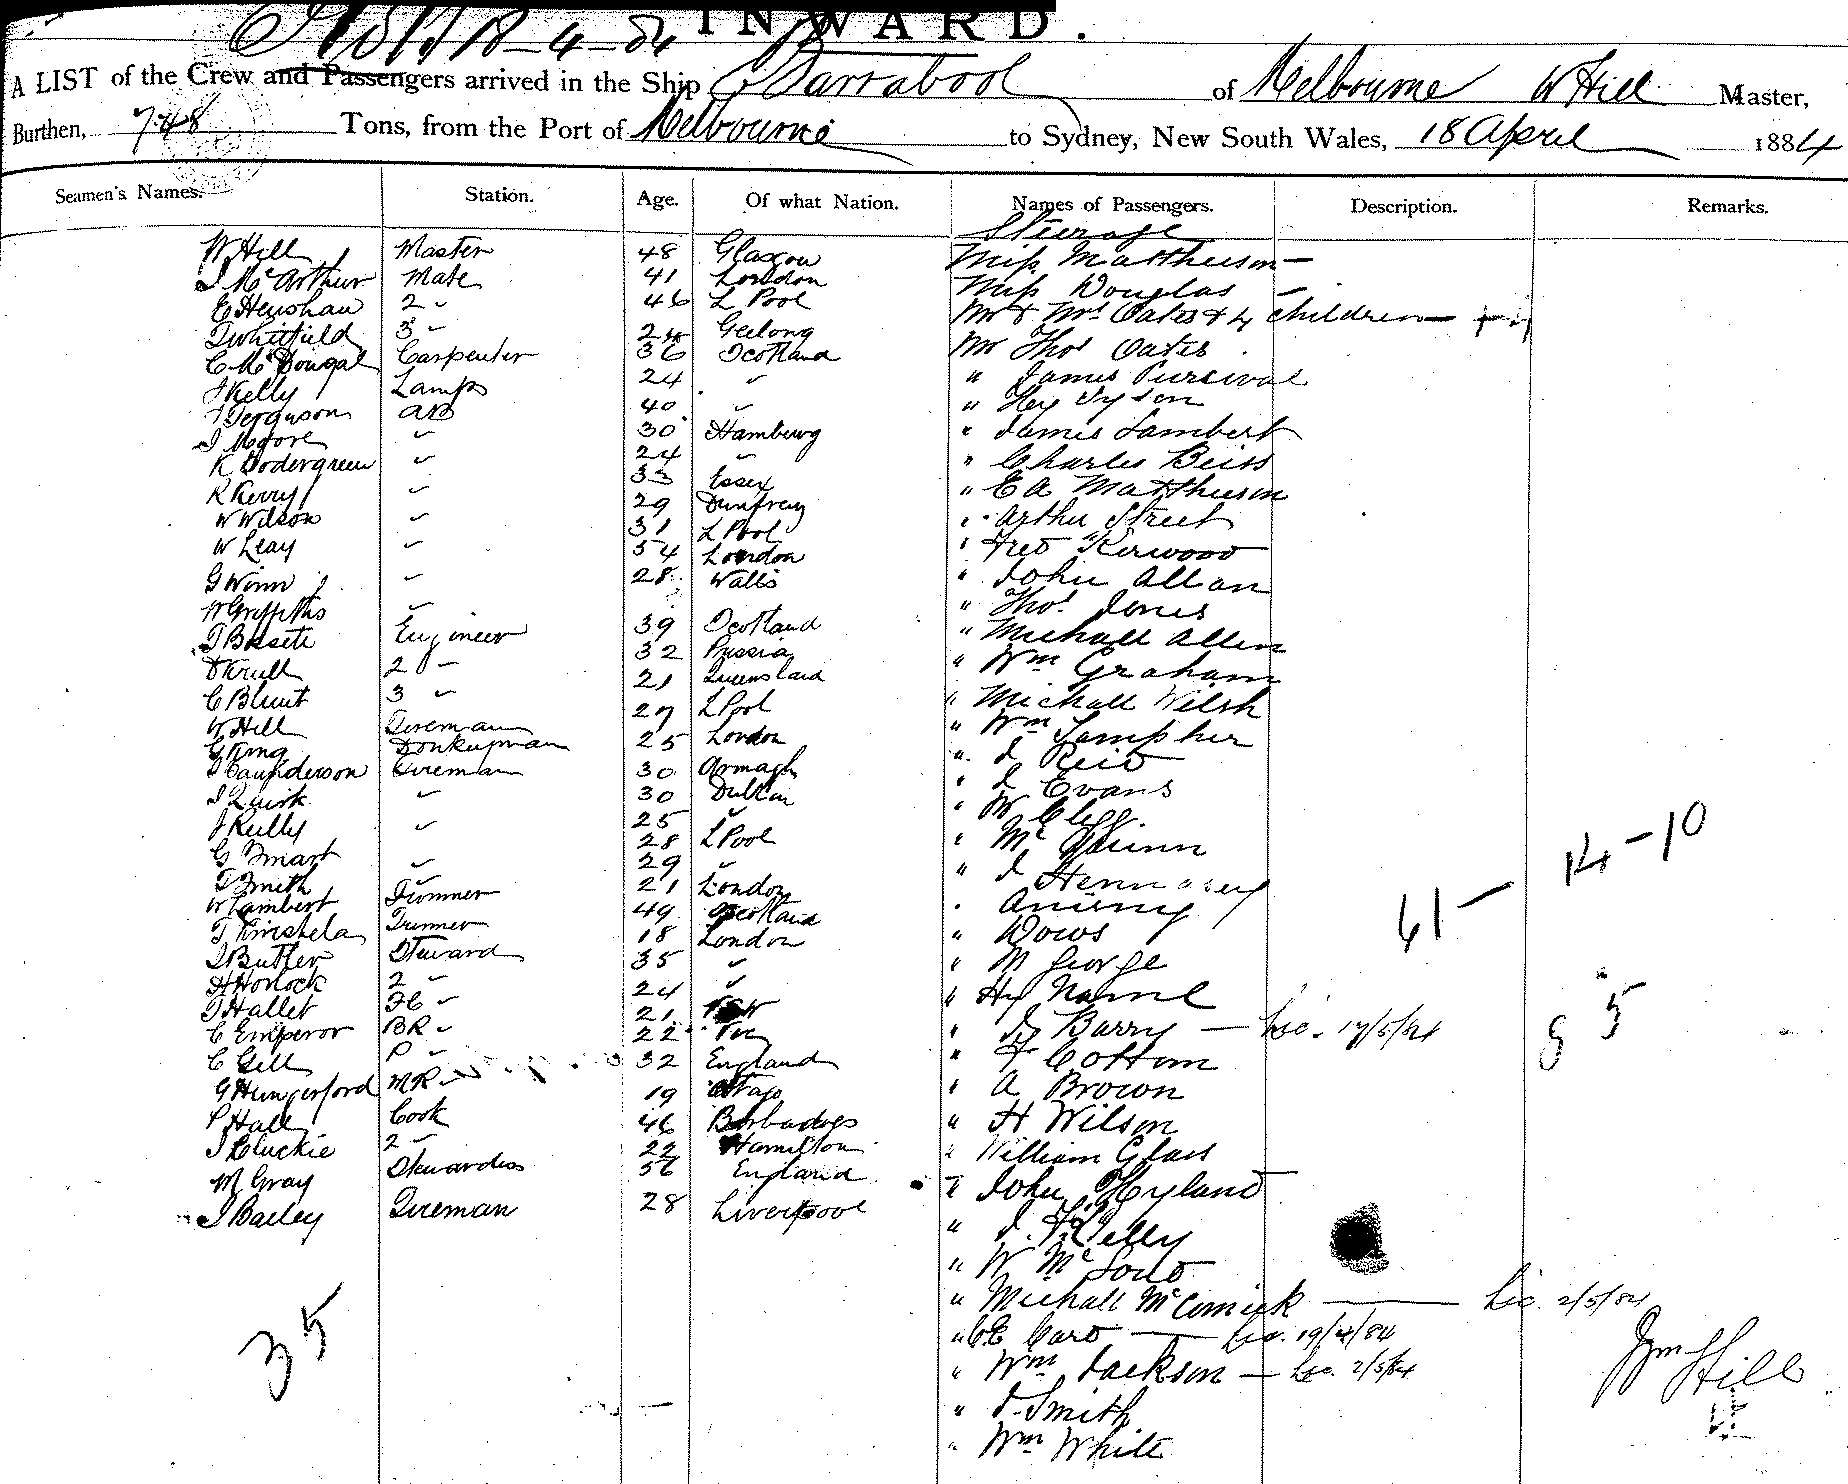 18-4-84 INWARD.
A LIST of the Crew and Passengers arrived in the Ship Barrabool of Melbourne W Hill Master,
Burthen, 748 Tons, from the Port of Melbourne to Sydney, New South Wales, 18 April 1884
Seamen's Names. Station. Age. Of what Nation. Names of Passengers. Description. Remarks.
Steerage
W Hill Master 48 Glasgow Miss Matthieson —
J McArthur Mate 41 London Miss Douglas —
E Henshaw 2 " 46 L Pool Mr & Mrs Oates & 4 children —
Whitfield 3 " 24 Geelong Mr Thos Oates
C McDougal Carpenter 36 Scotland " James Percival
J Kelly Lamps 24 " " Hy Tyson
J Ferguson AB 40 " " James Lambert
J Moore " 30 Hamburg " Charles Beiss
K Sodergreen " 24 " " E A Matthieson
R Kerry " 33 Essex " Arthur Street
W Wilson " 29 Dumfrey " Fred Kirwood
W Leay " 31 L Pool " John Allan
G Winn " 54 London " Thos Jones
W Griffiths " 28 Wales " Michall Allen
J Bissett Engineer 39 Scotland " Wm Graham
Krull 2 " 32 Prussia " Michall Welsh
C Blunt 3 " 21 Queensland " Wm Lampher
W Hill Fireman 27 L Pool " J Reid
G King Donkeyman 25 London " J Evans
J Saunderson Fireman 30 Armagh " W Clegg
J Quirk " 30 Dublin " Mc Guinn
J Kelly " 25 " " J Hennesey
G Smart " 28 L Pool "
T Smith " 29 " " Dows
W Lambert Trimmer 21 London " M George
J Kinshela Trimmer 49 Scotland " Hy
J Butler Steward 18 London " J Barry — Lic. 17/5/84
H Horlock 2 " 35 " " F Cottom
J Hallet FC " 24 " " A Brown
C Emperor BR " 21 " H Wilson
C Gill P " 22 Vic " William Glass
G Hungerford MR " 32 England " John Hyland
P Hall Cook 19 Otago " J. Kelly
J Cluckie 2 " 46 Barbadoes " W Mc
M Gray Stewardess 22 Hamilton " Michall McComick — Lic. 2/5/84
J Bailey Fireman 56 England " C E Card — Lic. 19/4/84
28 Liverpool " Wm Jackson — Lic. 2/5/84
" J. Smith
" Wm White
35
61 —
14-10
8 5
Wm Hill